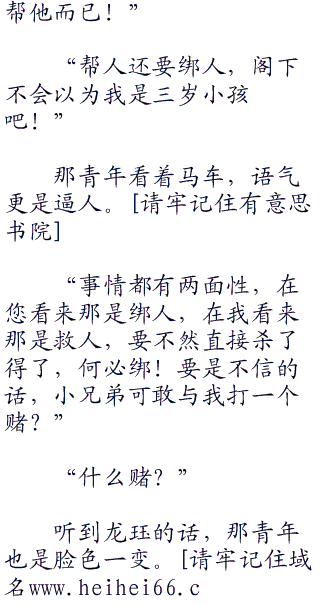 帮他而已！”
“帮人还要绑人，阁下
不会以为我是三岁小孩
吧！”
那青年看着马车，语气
更是逼人。[请牢记住有意思
书院]
“事情都有两面性，在
您看来那是绑人，在我看来
那是救人，要不然直接杀了
得了，何必绑！要是不信的
话，小兄弟可敢与我打一个
赌？”
“什么赌？”
听到龙珏的话，那青年
也是脸色一变。[请牢记住域
名www.heihei66.c